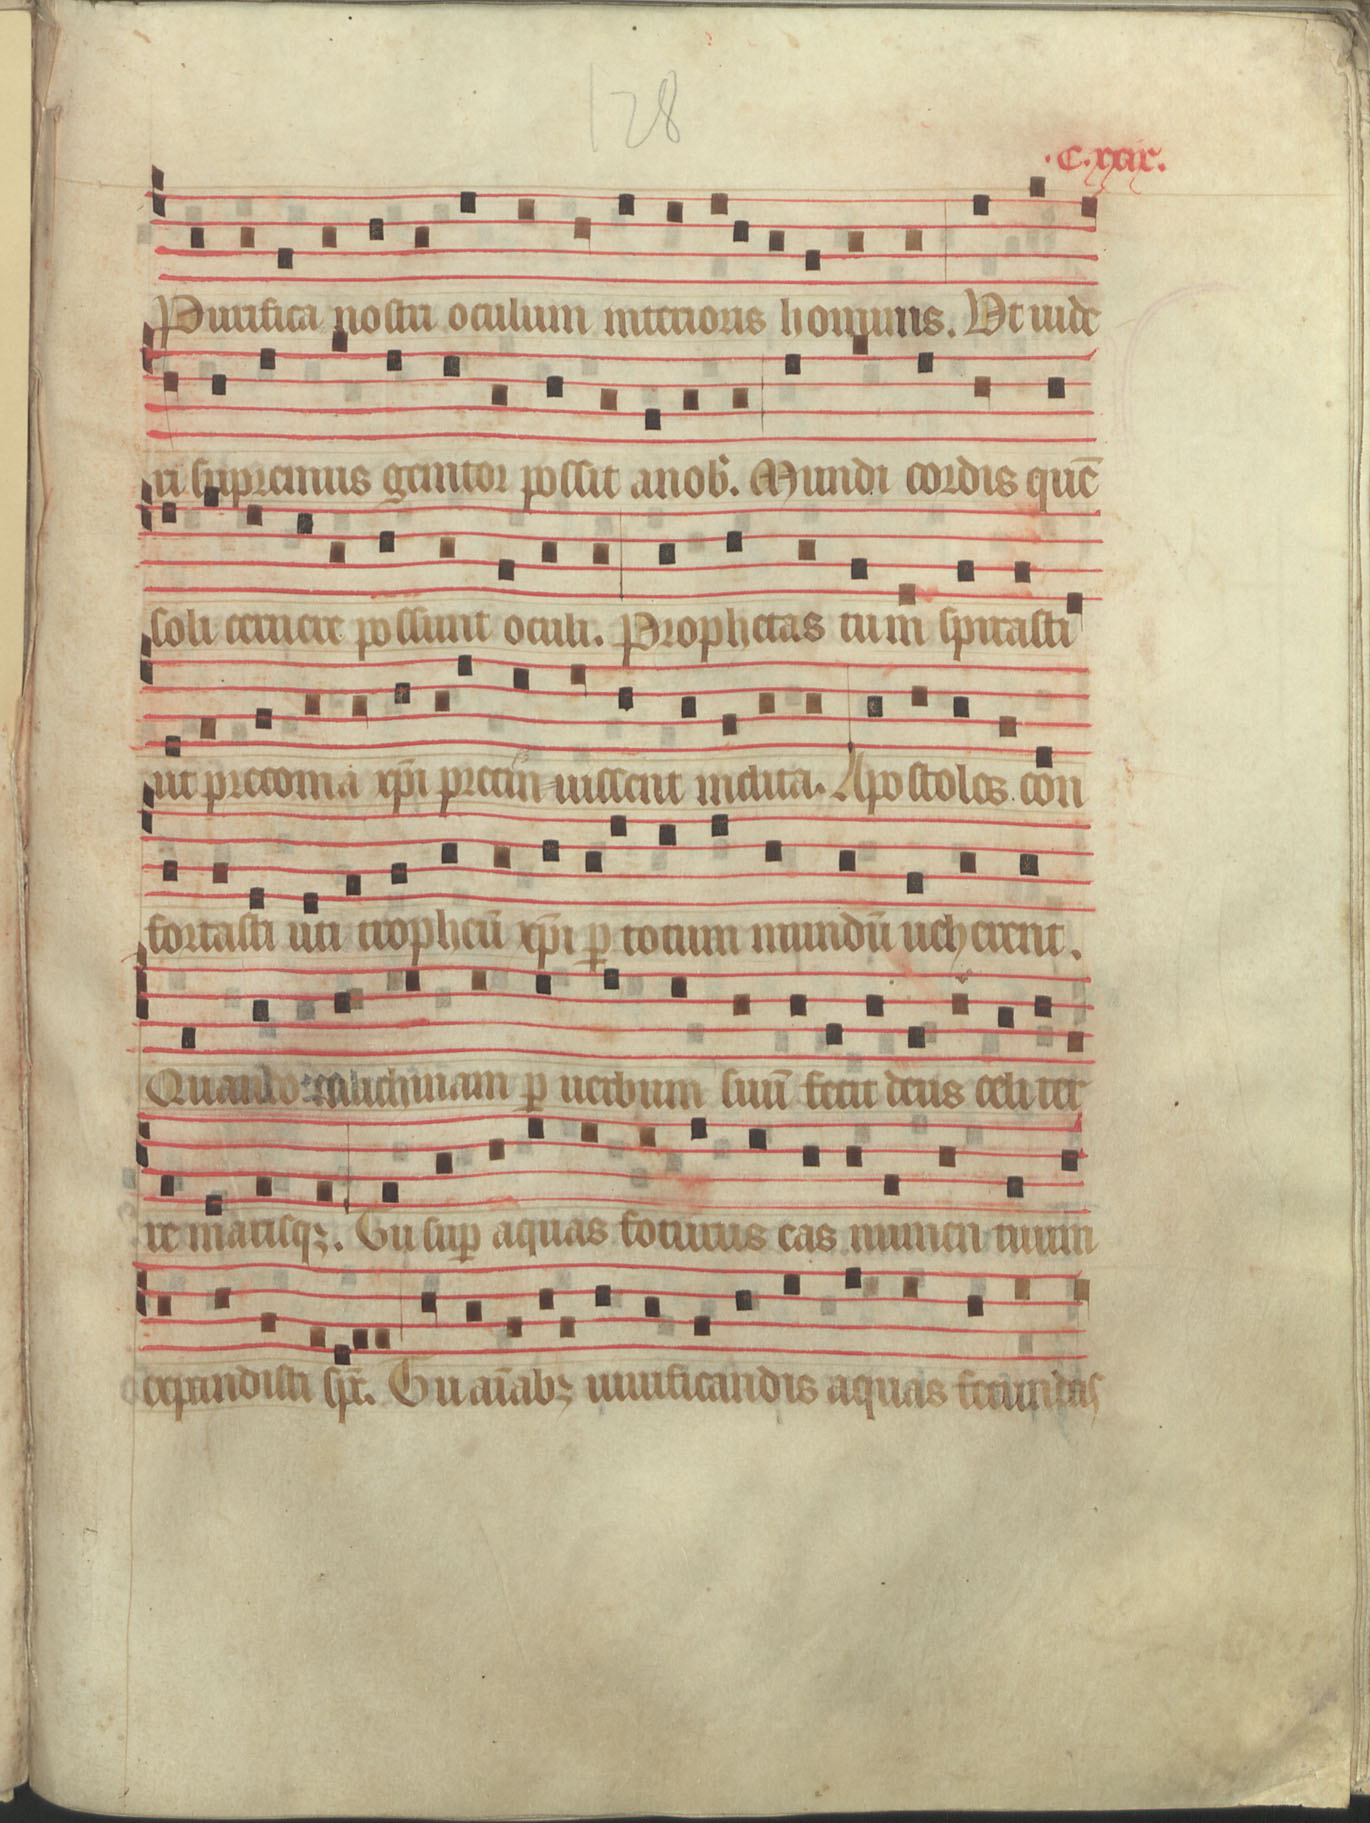 128
.C.xxix.
Purifica nostri oculum interioris hominis. Vt uide
ri supremus genitor possit anob̾. Mundi cordis quē
soli cernere possunt oculi. Prophetas tu m spirasti
ut preconia xp̄i precin uissent inclita. Apostolos con
fortasti uti tropheū xp̄i ꝑ totum mundū ueherent.
Quando machinam ꝑ uerbum suū fecit deus celi ter
re marisqꝫ. Tu suꝑ aquas foturus eas numen tuum
expandisti sp̄c. Tu aīabꝫ uiuificandis aquas fecundas